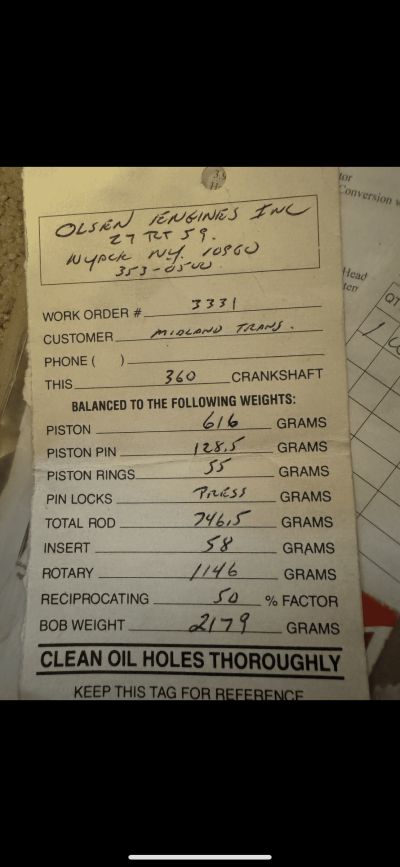 OLSEN ENGINES INC
27 RT 59.
NYACK NY. 10960
353-0500
WORK ORDER # 3331
CUSTOMER MIDLAND TRANS.
PHONE ( )
THIS 360 CRANKSHAFT
BALANCED TO THE FOLLOWING WEIGHTS:
PISTON 616 GRAMS
PISTON PIN 128.5 GRAMS
PISTON RINGS 55 GRAMS
PIN LOCKS PRESS GRAMS
TOTAL ROD 746.5 GRAMS
INSERT 58 GRAMS
ROTARY 1146 GRAMS
RECIPROCATING 50 % FACTOR
BOB WEIGHT 2179 GRAMS
CLEAN OIL HOLES THOROUGHLY
KEEP THIS TAG FOR REFERENCE
tor
Conversion
Head
ten
QT
1